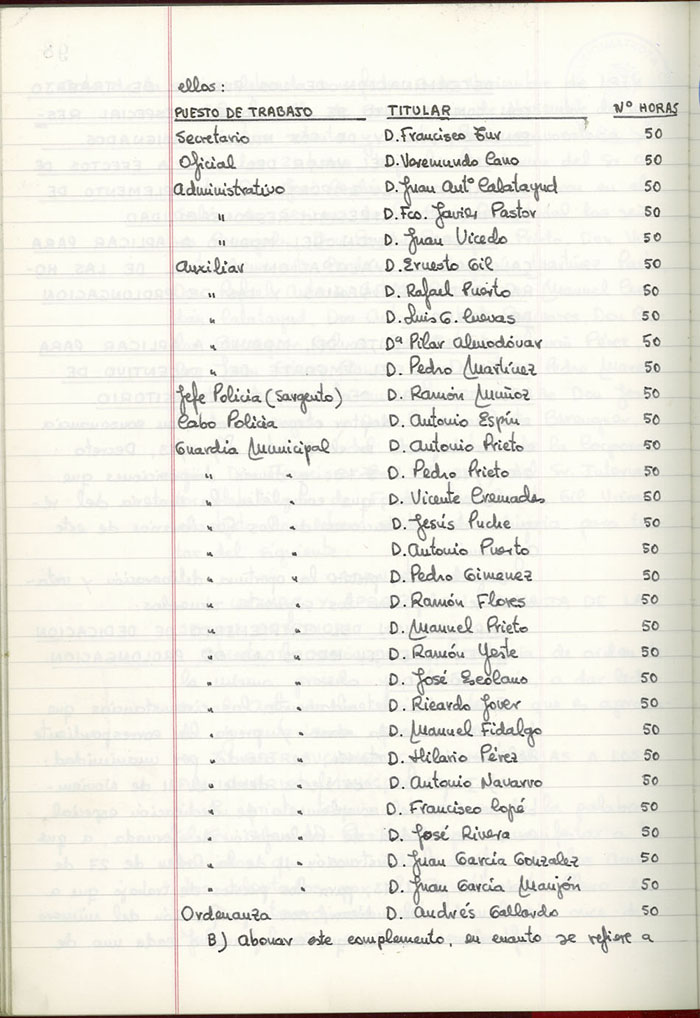 ellos:
PUESTO DE TRABAJO TITULAR Nº HORAS
Secretario D. Francisco Tur 50
Oficial D. Varemundo Cano 50
Administrativo D. Juan Antº Calatayud 50
" D. Fco. Javier Pastor 50
" D. Juan Vicedo 50
Auxiliar D. Ernesto Gil 50
" D. Rafael Puerto 50
" D. Luis G. Cuevas 50
" Dª Pilar Almodóvar 50
" D. Pedro Martínez 50
Jefe Policia (Sargento) D. Ramón Muñoz 50
Cabo Policia D. Antonio Espín 50
Guardia Municipal D. Antonio Prieto 50
" " D. Pedro Prieto 50
" " D. Vicente Cremades 50
" " D. Jesús Puche 50
" " D. Antonio Puerto 50
" " D. Pedro Gimenez 50
" " D. Ramón Flores 50
" " D. Manuel Prieto 50
" " D. Ramón Yeste 50
" " D. José Escolano 50
" " D. Ricardo Jover 50
" " D. Manuel Fidalgo 50
" " D. Hilario Pérez 50
" " D. Antonio Navarro 50
" " D. Francisco Copé 50
" " D. José Rivera 50
" " D. Juan García Gonzalez 50
" " D. Juan García Manjón 50
Ordenanza D. Andrés Gallardo 50
B) Abonar este complemento, en cuanto se refiere a